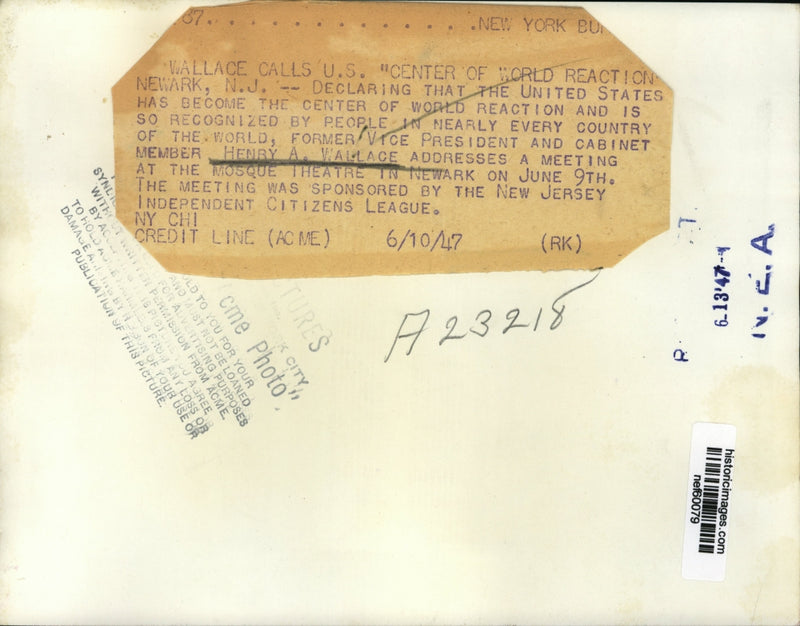 67. . . . . . . . . . . . . . . . . NEW YORK
WALLACE CALLS U.S. "CENTER OF WORLD REACTION
NEWARK, N.J. -- DECLARING THAT THE UNITED STATES
HAS BECOME THE CENTER OF WORLD REACTION AND IS
SO RECOGNIZED BY PEOPLE IN NEARLY EVERY COUNTRY
OF THE WORLD, FORMER VICE PRESIDENT AND CABINET
MEMBER HENRY A. WALLACE ADDRESSES A MEETING
AT THE MOSQUE THEATRE IN NEWARK ON JUNE 9TH.
THE MEETING WAS SPONSORED BY THE NEW JERSEY
INDEPENDENT CITIZENS LEAGUE.
NY CHI
CREDIT LINE (ACME) 6/10/47 (RK)
PICTURES
CITY
"Acme Photo"
TO YOU FOR YOUR
AND MUST NOT BE LOANED
FOR ADVERTISING PURPOSES
WRITTEN PERMISSION FROM ACME.
ANY LOSS OR
BY REASON OF YOUR USE OR
PUBLICATION OF THIS PICTURE.
A23218
R
6-13'47-
N.E.A.
historicimages.com
nef60079